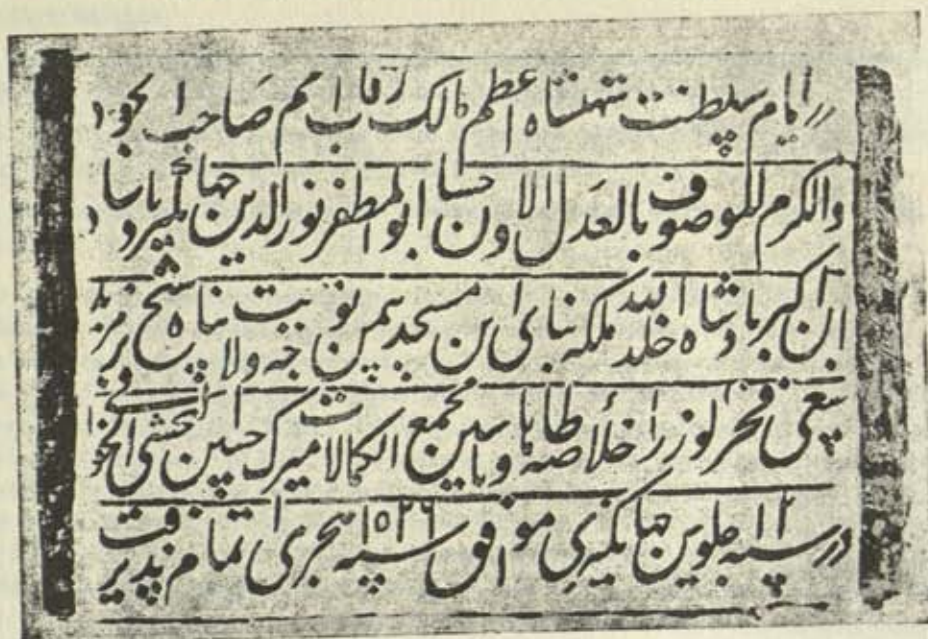 در ایام سلطنت شهنشاه اعظم مالک رقاب امم صاحب الجود
والکرم الموصوف بالعدل والاحسان ابوالمظفر نورالدین جهانگیر بادشاه
ابن اکبر بادشاه خلد الله ملکه بنای این مسجد بیمن ولایت پناه شیخ
سعی فخر الوزرا خلاصه طاها ویاسین مجمع الکمالات میرک حسین بخشی
در سنه ۱۲ جلوس جهانگیری موافق سنه ۱۰۲۶ هجری اتمام پذیرفت